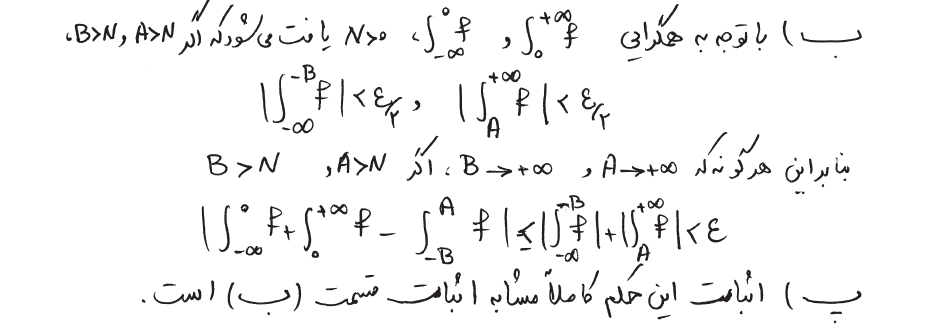 ب) با توجه به همگرایی ∫₀^{+∞} f و ∫_{-∞}^{۰} f، N>۰ یافت می‌شود که اگر A>N و B>N،
|∫_{-∞}^{-B} f| < ε/۲ و |∫_A^{+∞} f| < ε/۲
بنابراین هرگونه که A→+∞ و B→+∞، اگر A>N و B>N
|∫_{-∞}^{۰} f + ∫_۰^{+∞} f - ∫_{-B}^{A} f| ≤ |∫_{-∞}^{-B} f| + |∫_A^{+∞} f| < ε
پ) اثبات این حکم کاملاً مشابه اثبات قسمت (ب) است.